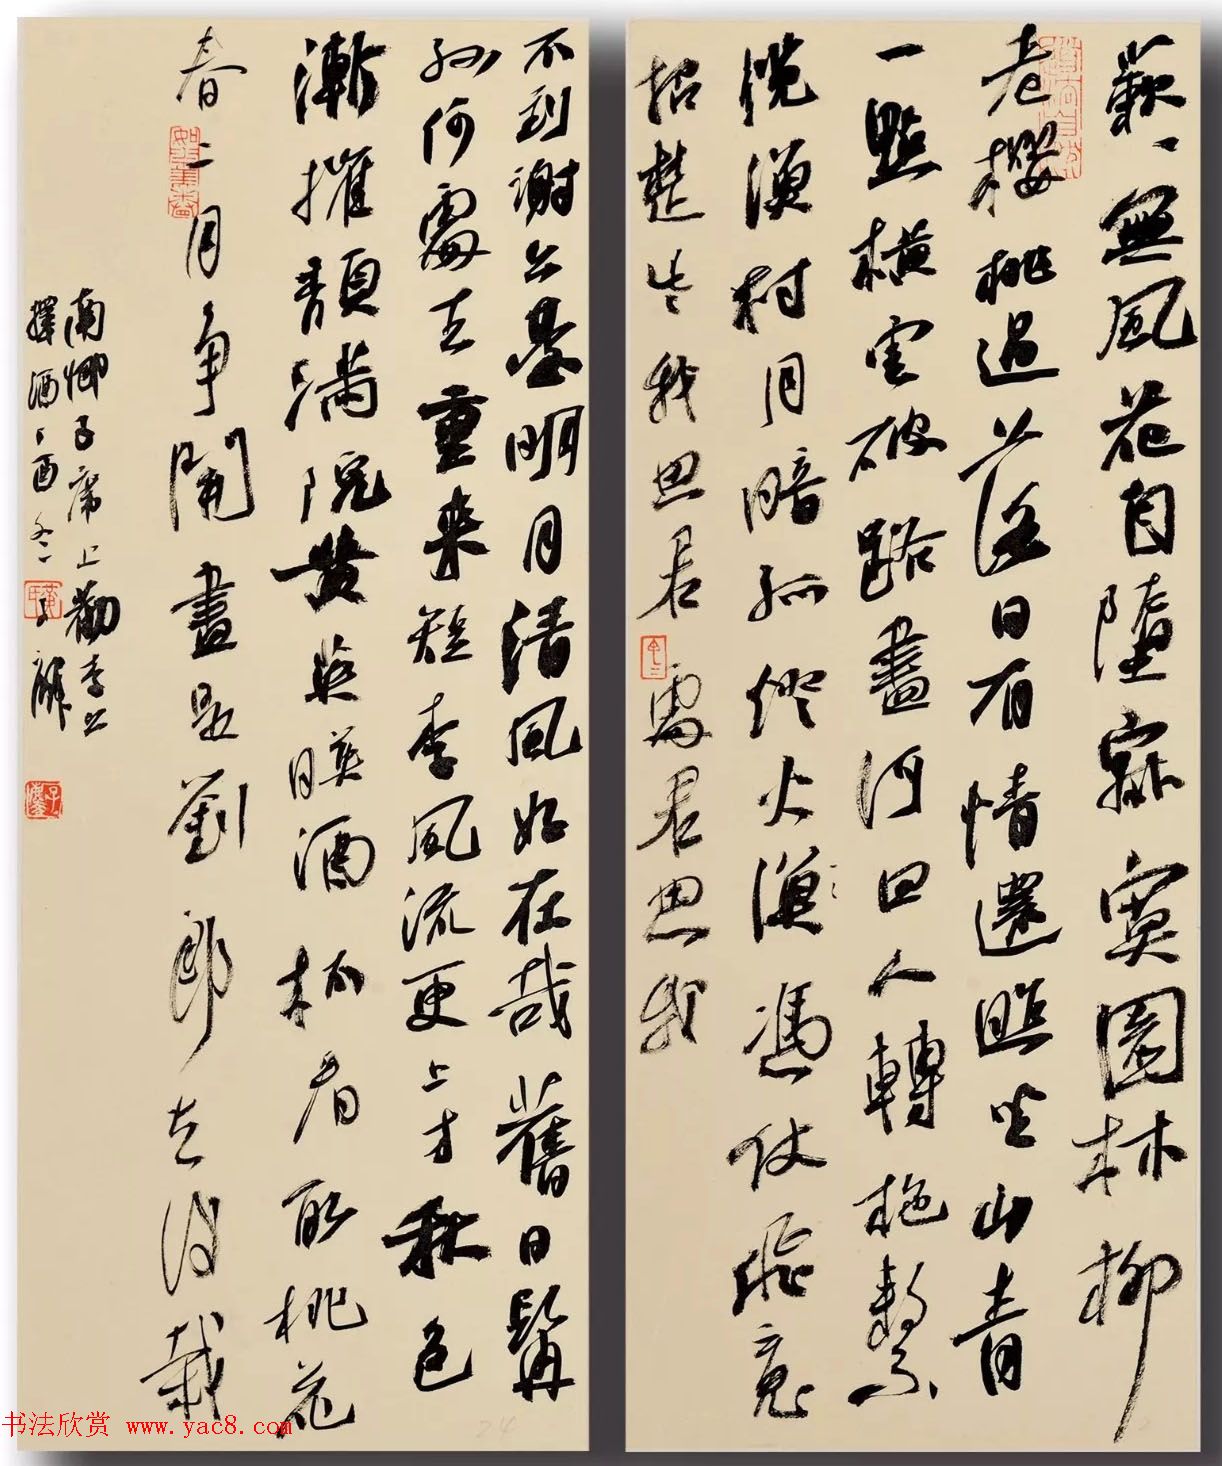 蔌蔌無風花自墮寂寞園林柳
老櫻桃過落日有情還照坐山青
一點橫雲破路盡河回人轉柂繫
纜漁村月暗孤燈火漁憑仗飛魂
招楚些我思君處君思我
不到謝公臺明月清風好在哉舊日髯
孫何處去重來短李風流更上才秋色
漸摧頹滿院黃英映酒杯看取桃花
春二月爭開盡是劉郎去後栽
南鄉子席上勸李公
擇酒丁酉冬
书法欣赏 www.yac8.com